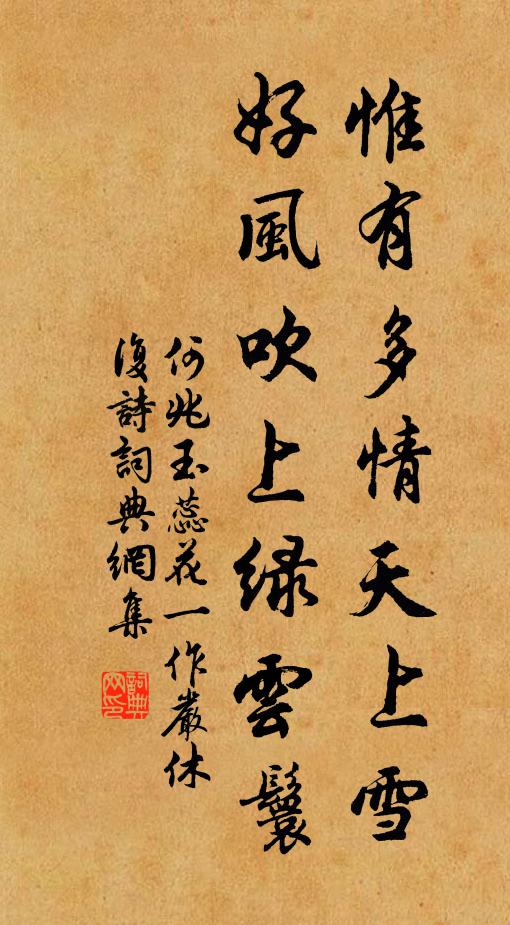 惟有多情天上雪
好風吹上綠雲鬟
何兆玉蕊花一作嚴休
復詩詞典網集
詞典網印